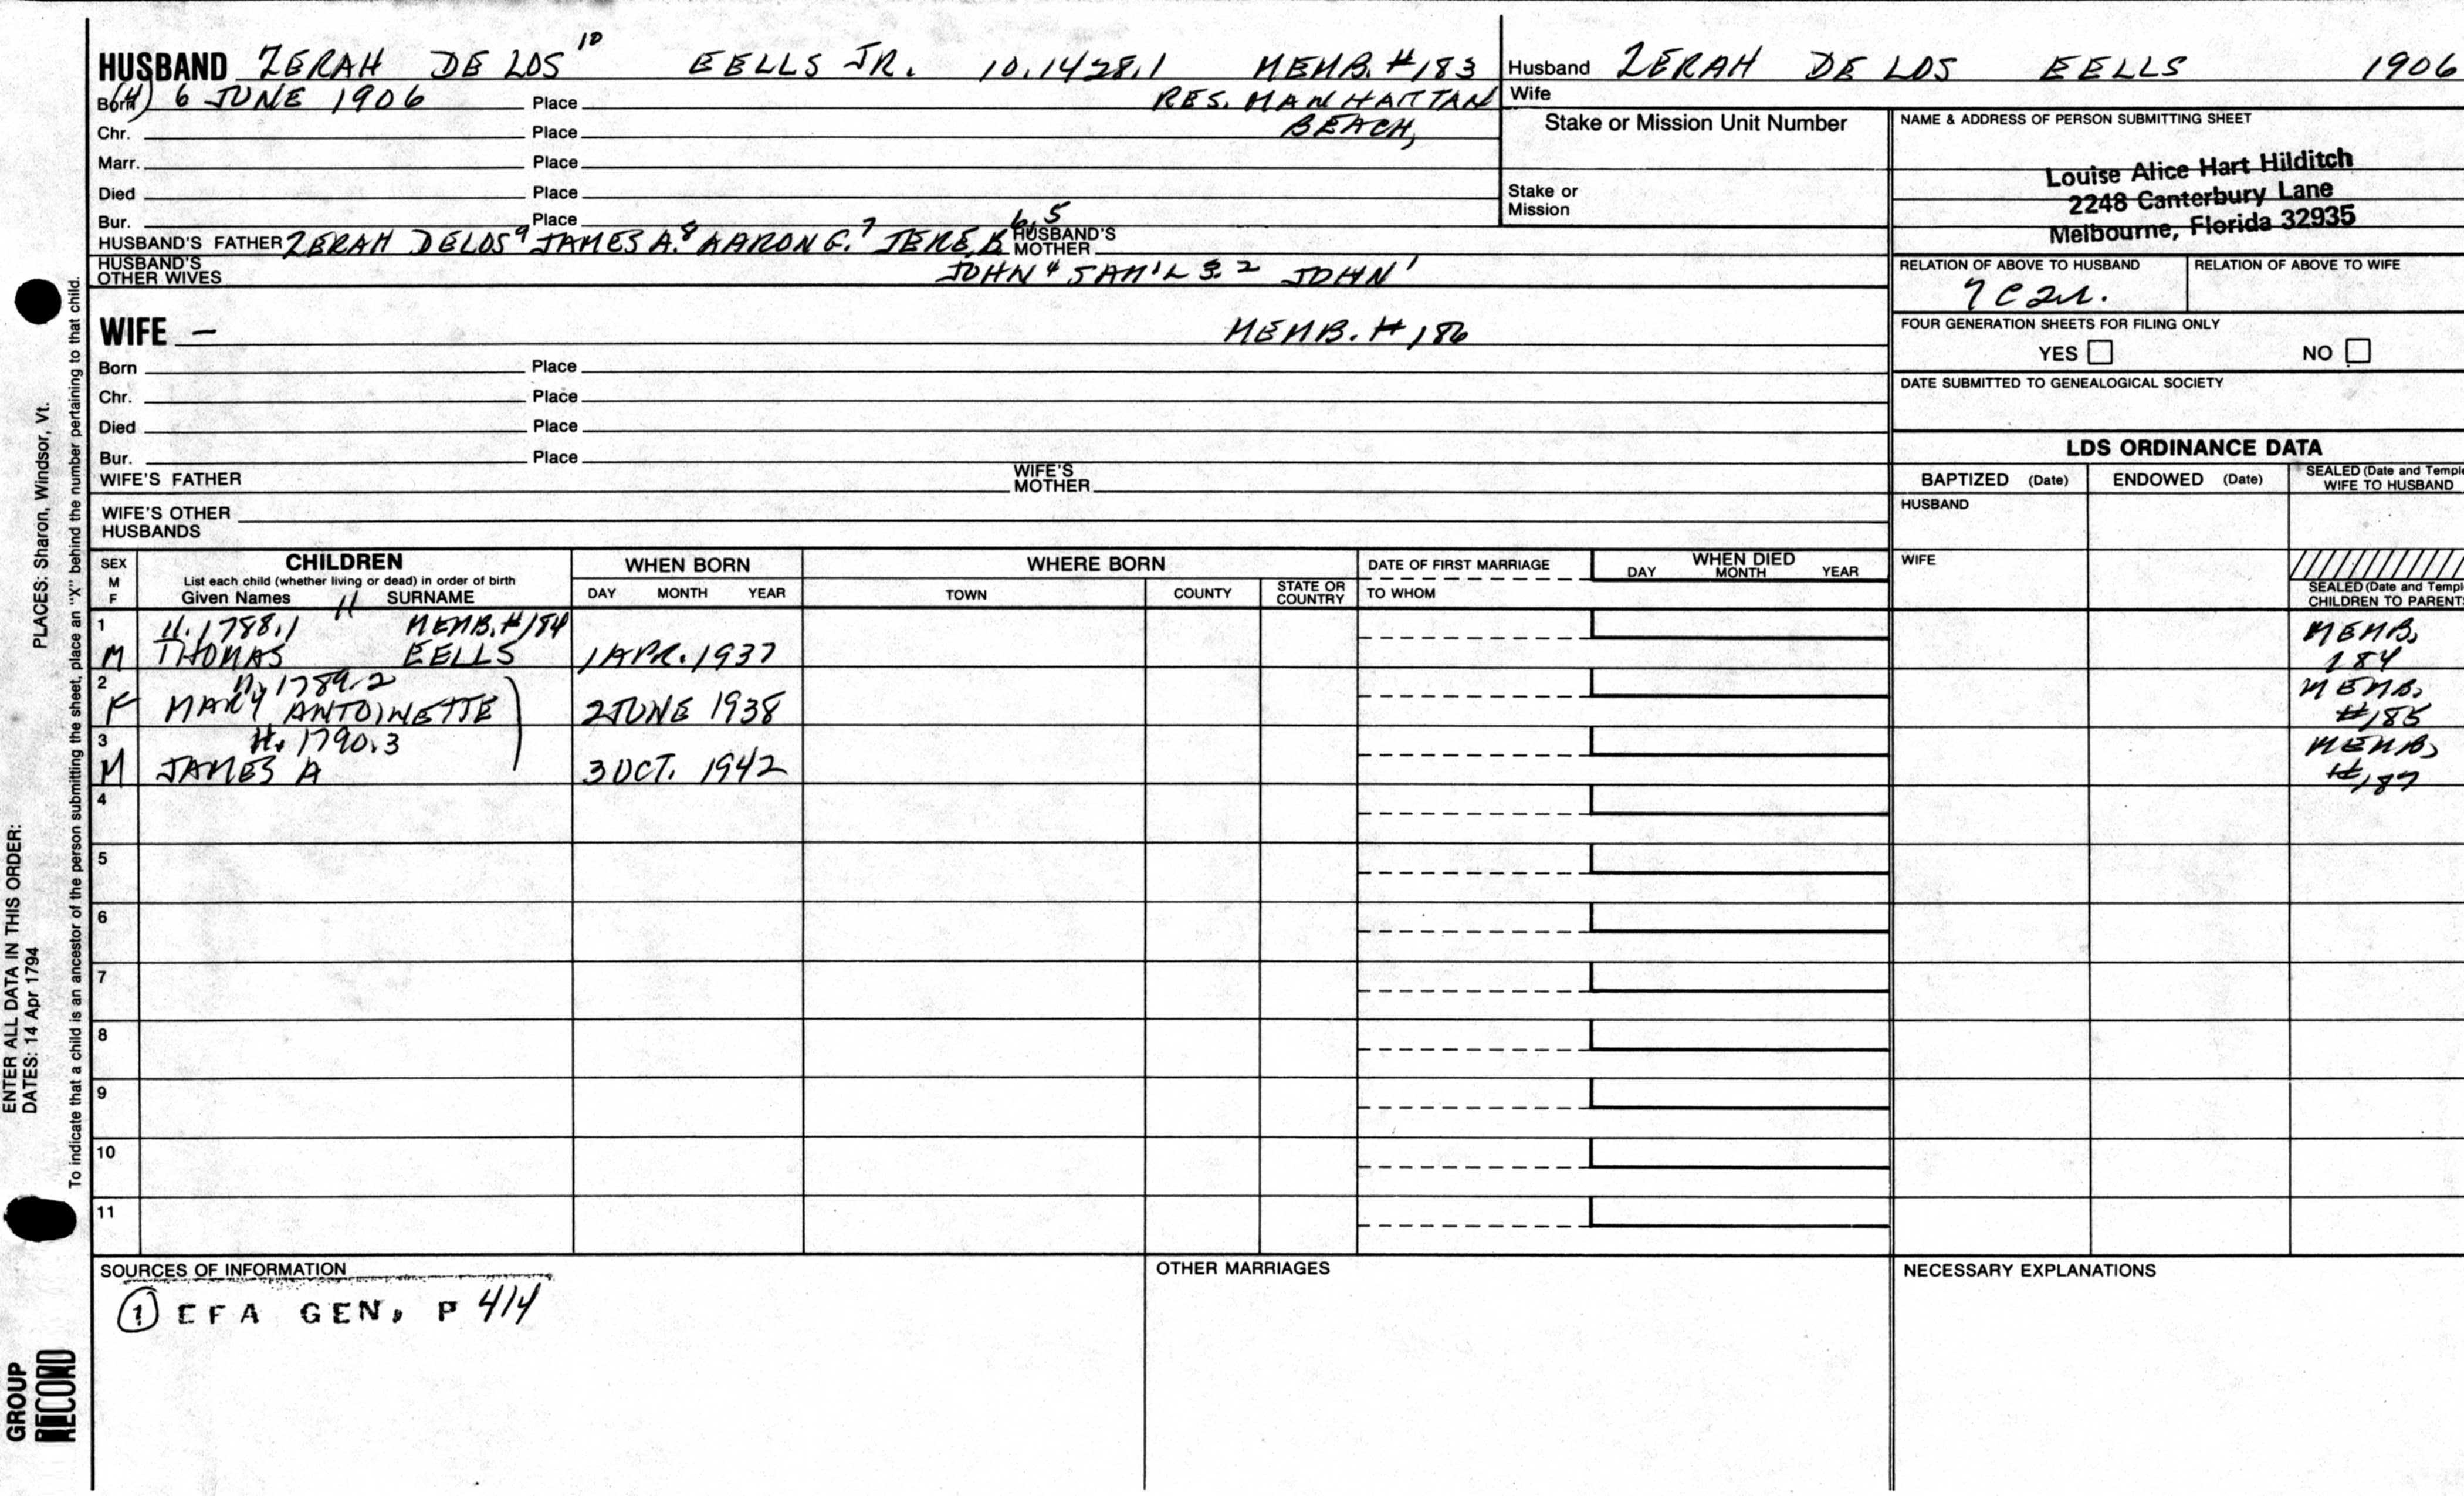 HUSBAND ZERAH DE LOS 10 EELLS JR. 10.1428.1 MEMB. #183
Born (4) 6 JUNE 1906 Place RES. MANHATTAN
Chr. Place BEACH,
Marr. Place
Died Place
Bur. Place
HUSBAND'S FATHER ZERAH DELOS 9 JAMES A. 8 AARON G. 7 JERE. B 6, 5 HUSBAND'S MOTHER
HUSBAND'S OTHER WIVES JOHN 4 SAM'L 3. 2 JOHN 1
WIFE — MEMB. # 186
Born Place
Chr. Place
Died Place
Bur. Place
WIFE'S FATHER WIFE'S MOTHER
WIFE'S OTHER HUSBANDS
Husband ZERAH DE LOS EELLS 1906
Wife
Stake or Mission Unit Number
Stake or Mission
NAME & ADDRESS OF PERSON SUBMITTING SHEET
Louise Alice Hart Hilditch
2248 Canterbury Lane
Melbourne, Florida 32935
RELATION OF ABOVE TO HUSBAND RELATION OF ABOVE TO WIFE
7C2R.
FOUR GENERATION SHEETS FOR FILING ONLY
YES NO
DATE SUBMITTED TO GENEALOGICAL SOCIETY
LDS ORDINANCE DATA
BAPTIZED (Date) ENDOWED (Date) SEALED (Date and Temple
WIFE TO HUSBAND
HUSBAND
WIFE
SEALED (Date and Templ
CHILDREN TO PARENT
SEX M F
CHILDREN
List each child (whether living or dead) in order of birth
Given Names 11 SURNAME
WHEN BORN
DAY MONTH YEAR
WHERE BORN
TOWN COUNTY STATE OR COUNTRY
DATE OF FIRST MARRIAGE
TO WHOM
WHEN DIED
DAY MONTH YEAR
1 11.1788.1 MEMB. #184 MEMB.
M THOMAS EELLS 1 APR. 1937 184
2 11.1789.2 MEMB.
F MARY ANTOINETTE 2 JUNE 1938 #185
3 11.1790.3 MEMB.
M JAMES A 3 OCT. 1942 #187
4
5
6
7
8
9
10
11
SOURCES OF INFORMATION
1 EFA GEN, P 414
OTHER MARRIAGES
NECESSARY EXPLANATIONS
PLACES: Sharon, Windsor, Vt.
ENTER ALL DATA IN THIS ORDER:
DATES: 14 Apr 1794
To indicate that a child is an ancestor of the person submitting the sheet, place an "X" behind the number pertaining to that child.
GROUP
RECORD